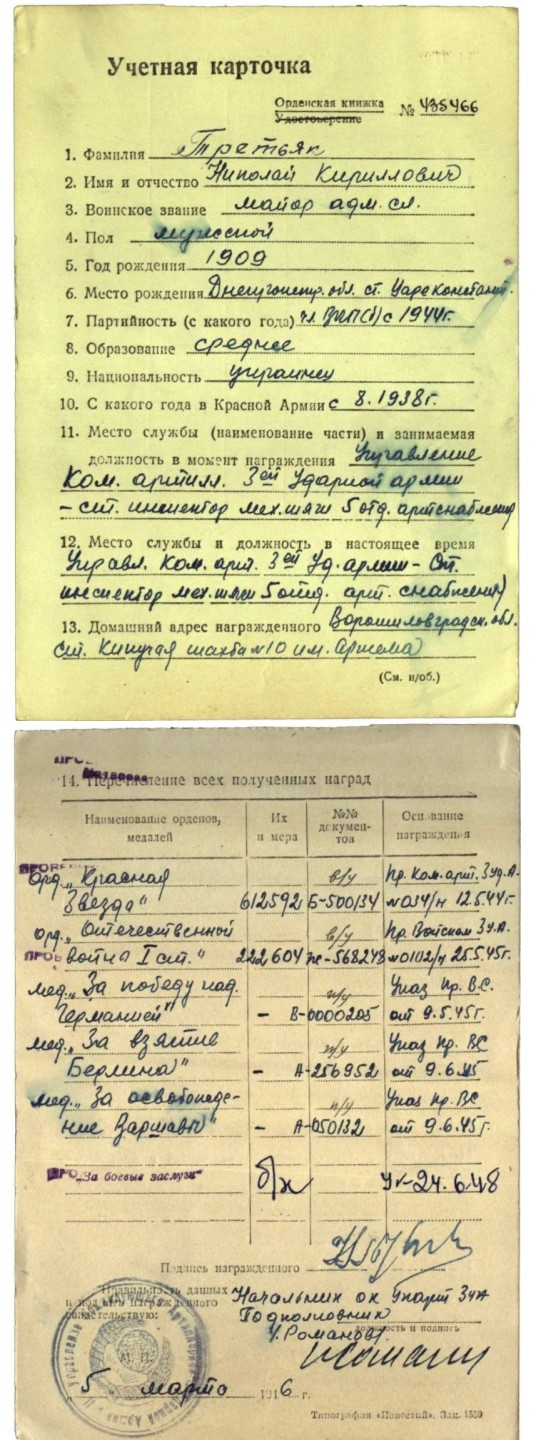 Учетная карточка
Орденская книжка
Удостоверение № 435466
1. Фамилия Третьяк
2. Имя и отчество Николай Кириллович
3. Воинское звание майор адм. сл.
4. Пол мужской
5. Год рождения 1909
6. Место рождения Днепропетр. обл. ст. Царе Константин.
7. Партийность (с какого года) чл. ВКП(б) с 1944г.
8. Образование среднее
9. Национальность украинец
10. С какого года в Красной Армии с 8.1938г.
11. Место службы (наименование части) и занимаемая
должность в момент награждения Управление
Ком. артилл. 3ей Ударной армии
– ст. инспектор мех.тяги 5 отд. артснабжения
12. Место службы и должность в настоящее время
Управл. Ком. арт. 3ей Уд. армии – Ст.
инспектор мех.тяги 5 отд. арт. снабжения
13. Домашний адрес награжденного Ворошиловградск. обл.
ст. Кипучая шахта №10 им. Артема
(См. н/об.)
14. Перечисление всех полученных наград
Наименование орденов, Их №№ Основание
медалей номера докумен- награждения
тов
орд. „Красная в/у Пр. Ком. арт. 3 Уд. А.
Звезда" 612592 Б-500134 №034/н 12.5.44г.
орд. „Отечественной в/у Пр. Войскам 3 У.А.
война I ст." 222604 568248 №0102/н 25.5.45г.
мед. „За победу над п/у Указ Пр. В.С.
Германией" – В-0000205 от 9.5.45г.
мед. „За взятие п/у Указ Пр. ВС
Берлина" – А-256952 от 9.6.45
мед. „За освобожде- п/у Указ Пр. ВС
ние Варшавы" – А-050132 от 9.6.45г.
„За боевые заслуги" б/н Ук-24.6.48
Подпись награжденного
Правильность данных Начальник ок Укарт 3 УА
и подпись награжденного Подполковник
свидетельствую: Романов
должность и подпись
М. П.
5 марта 1946 г.
Типография «Известий». Зак. 1550